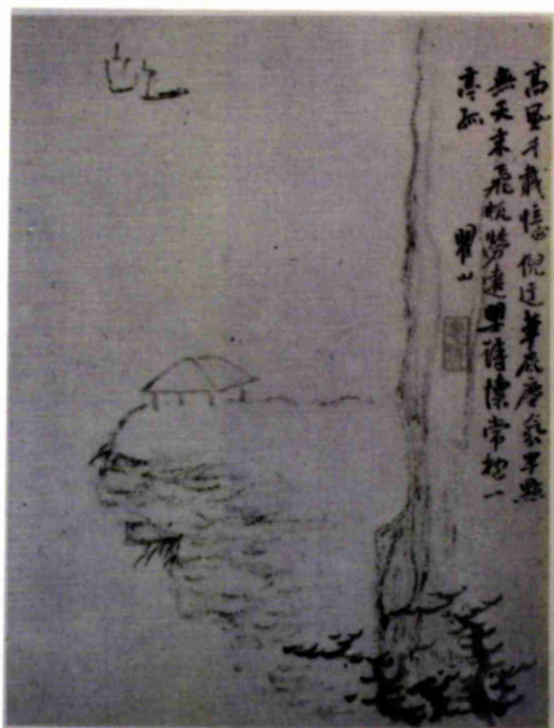 高風千載憶倪迂筆底塵氛半點
無天末飛帆勞遠望詩懷常抱一
亭孤
瞿山